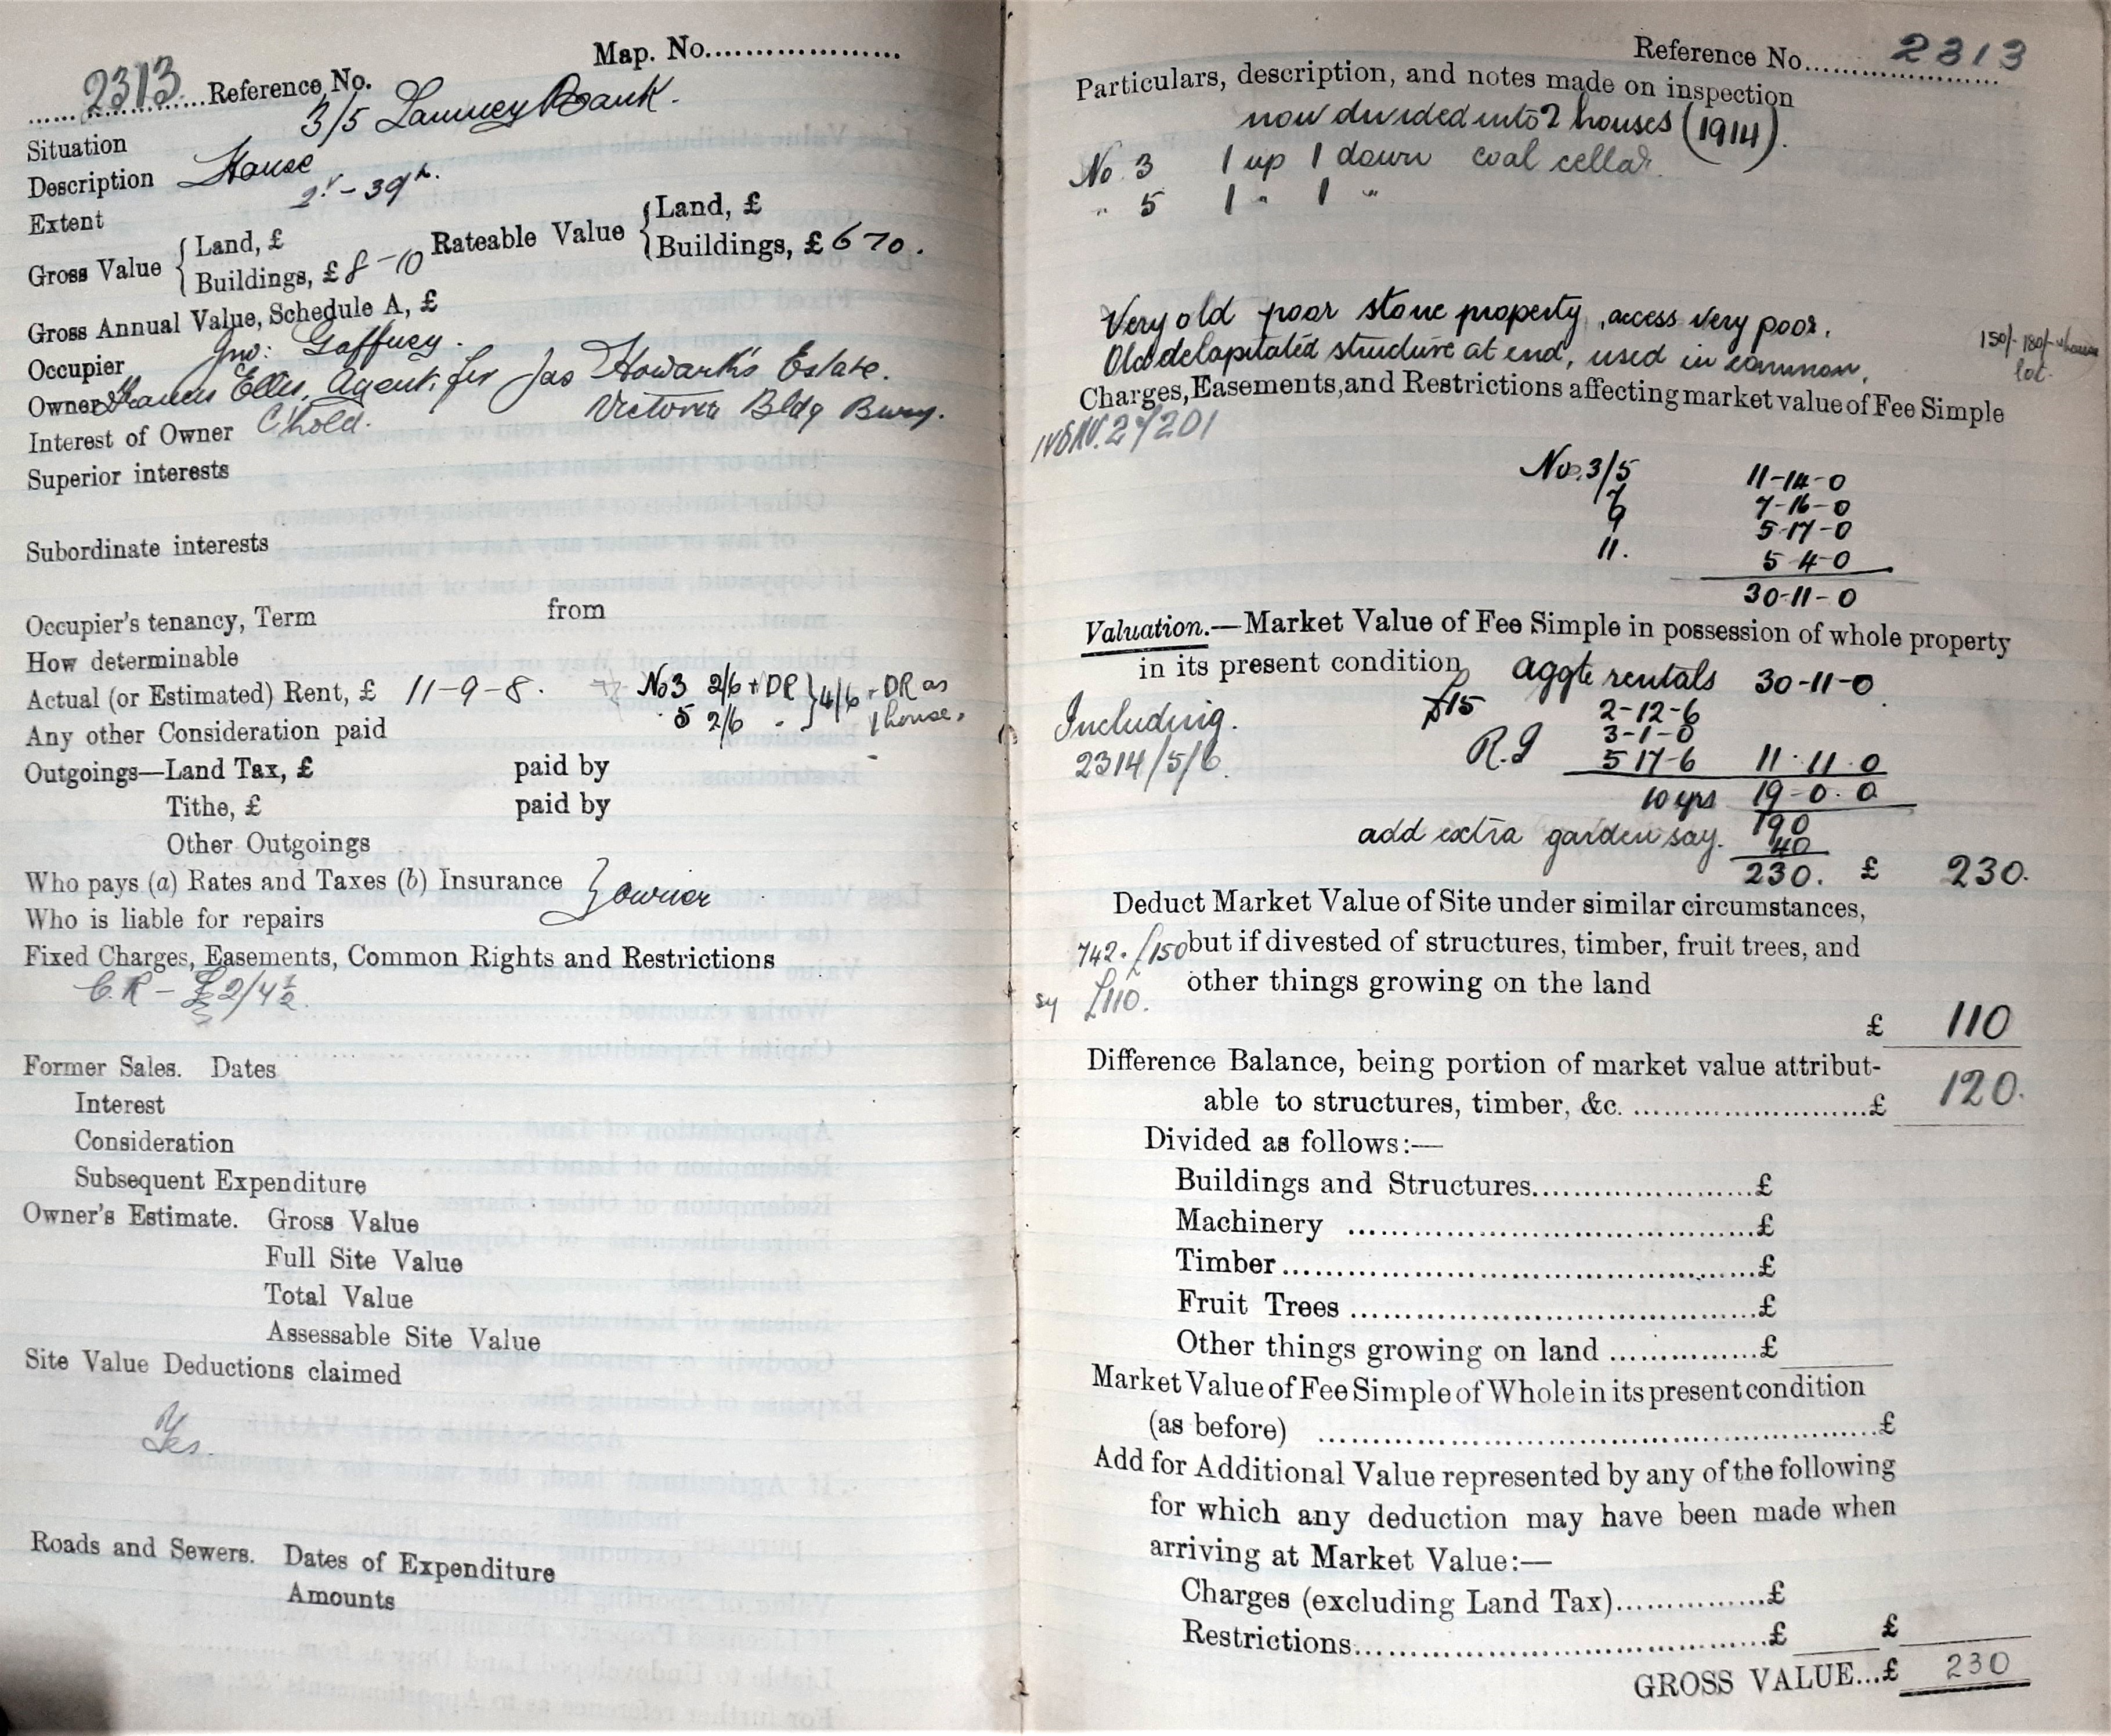 Map. No....................
2313 Reference No.
Situation 3/5 Bank.
Description House
Extent 2r - 39
Gross Value { Land, £
Buildings, £ 8-10
Rateable Value { Land, £
Buildings, £ 6 70.
Gross Annual Value, Schedule A, £
Occupier Jno: Gaffney.
Owner Ellis, Agent, for Jas Howarth's Estate.
Victoria Bldg Bury.
Interest of Owner C'hold.
Superior interests
Subordinate interests
Occupier's tenancy, Term from
How determinable
Actual (or Estimated) Rent, £ 11-9-8. No3 2/6 + DR } 4/6 + DR as
5 2/6 " 1 house.
Any other Consideration paid
Outgoings—Land Tax, £ paid by
Tithe, £ paid by
Other Outgoings
Who pays (a) Rates and Taxes (b) Insurance } owner
Who is liable for repairs
Fixed Charges, Easements, Common Rights and Restrictions
C.R - 2/4½
Former Sales. Dates
Interest
Consideration
Subsequent Expenditure
Owner's Estimate. Gross Value
Full Site Value
Total Value
Assessable Site Value
Site Value Deductions claimed
Yes.
Roads and Sewers. Dates of Expenditure
Amounts
Reference No. 2313
Particulars, description, and notes made on inspection
now divided into 2 houses (1914).
No 3 1 up 1 down coal cellar.
" 5 1 " 1 "
Very old poor stone property, access very poor.
Old delapitated structure at end, used in common.
150/- 180/-
lot.
Charges, Easements, and Restrictions affecting market value of Fee Simple
27201
No. 3/5 11-14-0
7 7-16-0
9 5-17-0
11. 5-4-0
30-11-0
Valuation.—Market Value of Fee Simple in possession of whole property
in its present condition aggte rentals 30-11-0
Including. £15 2-12-6
3-1-0
2314/5/6. 5 17-6 11-11-0
10 yrs 19-0-0
190
add extra garden say. 40
230. £ 230.
Deduct Market Value of Site under similar circumstances,
742. £150 but if divested of structures, timber, fruit trees, and
sy £110. other things growing on the land
£ 110
Difference Balance, being portion of market value attribut-
able to structures, timber, &c. ........................£ 120.
Divided as follows:—
Buildings and Structures........................£
Machinery ........................£
Timber........................£
Fruit Trees ........................£
Other things growing on land ................£
Market Value of Fee Simple of Whole in its present condition
(as before) ........................£
Add for Additional Value represented by any of the following
for which any deduction may have been made when
arriving at Market Value:—
Charges (excluding Land Tax)................£
Restrictions........................£ £
GROSS VALUE...£ 230